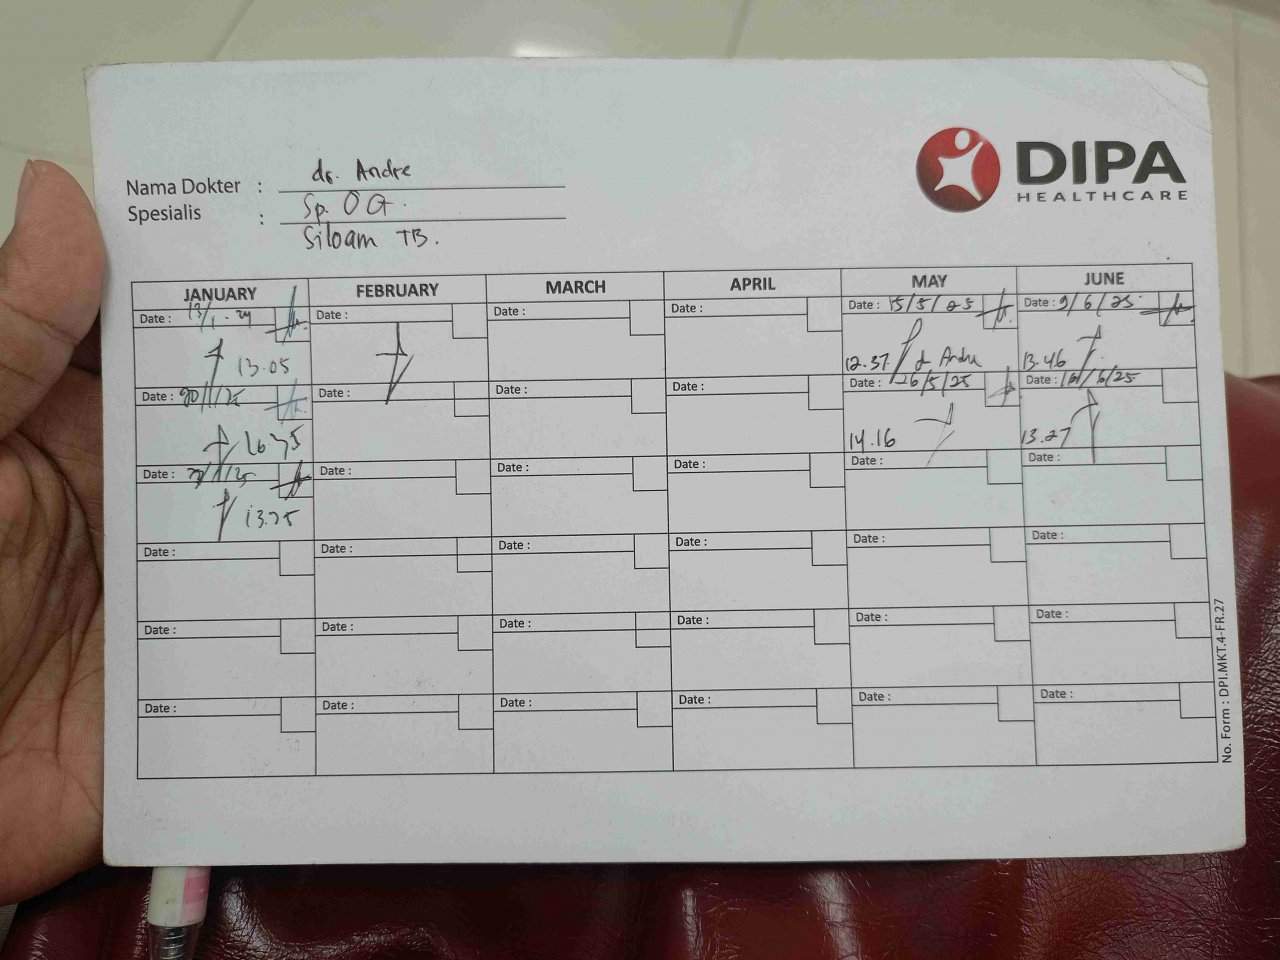 DIPA
HEALTHCARE
Nama Dokter : dr. Andre
Spesialis : Sp. OG.
Siloam TB.
JANUARY FEBRUARY MARCH APRIL MAY JUNE
Date : 13/1-24 Date : Date : Date : Date : 15/5/25 Date : 9/6/25
13.05 12.37 dr Andre 13.46
Date : 20/1/25 Date : Date : Date : Date : 26/5/25 Date : 16/6/25
14.16 13.27
Date : Date : Date : Date : Date : Date :
13.25
Date : Date : Date : Date : Date : Date :
Date : Date : Date : Date : Date : Date :
Date : Date : Date : Date : Date : Date :
No. Form : DPI.MKT.4-FR.27